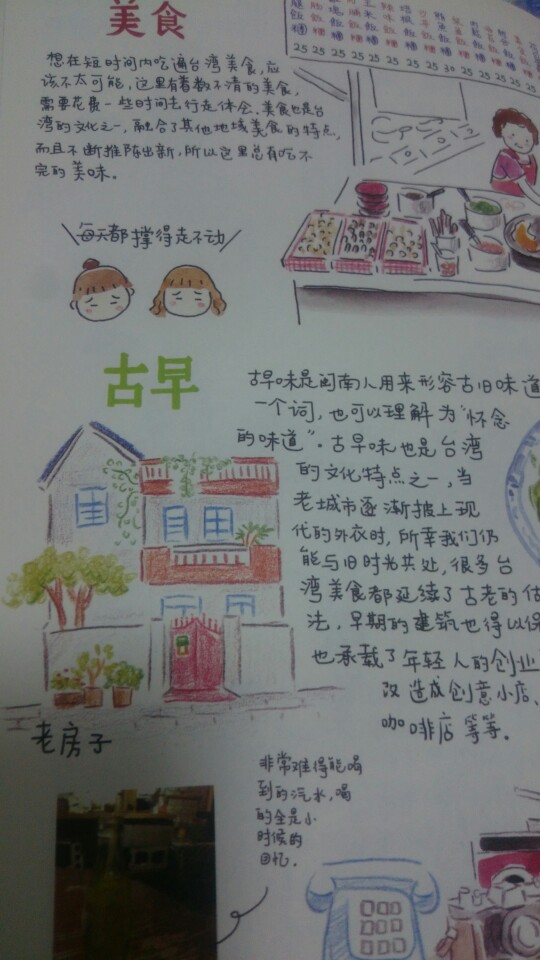 美食
想在短时间内吃遍台湾美食,应
该不太可能,这里有着数不清的美食,
需要花费一些时间去行走体会。美食也是台
湾的文化之一,融合了其他地域美食的特点,
而且不断推陈出新,所以这里总有吃不
完的美味。
25 25 25 25 25 25 25 25 30 25 25 25 25 25
每天都撑得走不动
古早
古早味是闽南人用来形容古旧味道
一个词,也可以理解为“怀念
的味道”。古早味也是台湾
的文化特点之一,当
老城市逐渐披上现
代的外衣时,所幸我们仍
能与旧时光共处,很多台
湾美食都延续了古老的
法,早期的建筑也得以保
也承载了年轻人的创业
改造成创意小店、
咖啡店等等。
老房子
非常难得能喝
到的汽水,喝
的全是小
时候的
回忆。